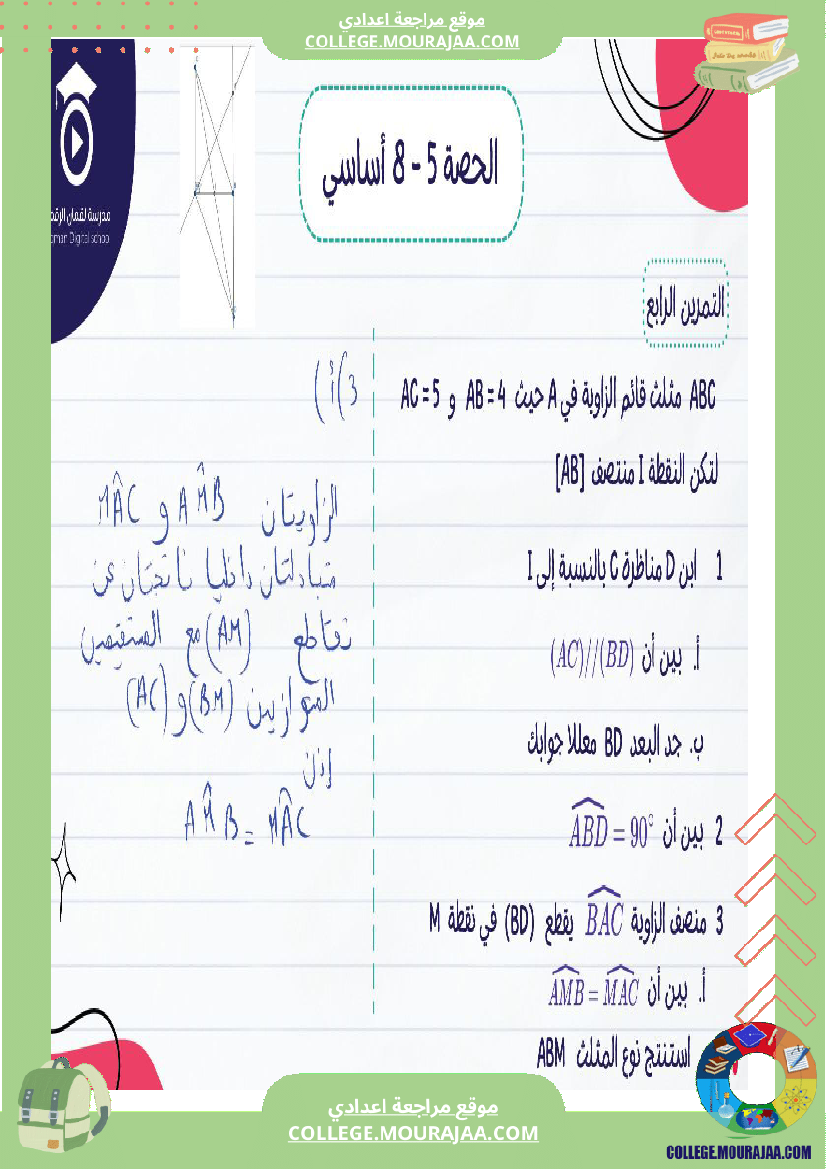 موقع مراجعة اعدادي
COLLEGE.MOURAJAA.COM
الحصة 5 - 8 أساسي
مدرسة لقمان الرقمية
oman Digital school
التمرين الرابع
ABC مثلث قائم الزاوية في A حيث AB = 4 و AC = 5
لتكن النقطة I منتصف [AB]
1 ابن D مناظرة C بالنسبة إلى I
أ. بين أن (AC)//(BD)
ب. جد البعد BD معللا جوابك
2 بين أن \widehat{ABD} = 90°
3 منصف الزاوية \widehat{BAC} يقطع (BD) في نقطة M
أ. بين أن \widehat{AMB} = \widehat{MAC}
استنتج نوع المثلث ABM
3) أ)
الزاويتان AM̂B و MÂC
متبادلتان داخليا ناتجتان عن
تقاطع (AM) مع المستقيمين
المتوازيين (BM) و (AC)
إذن
AM̂B = MÂC
موقع مراجعة اعدادي
COLLEGE.MOURAJAA.COM
COLLEGE.MOURAJAA.COM